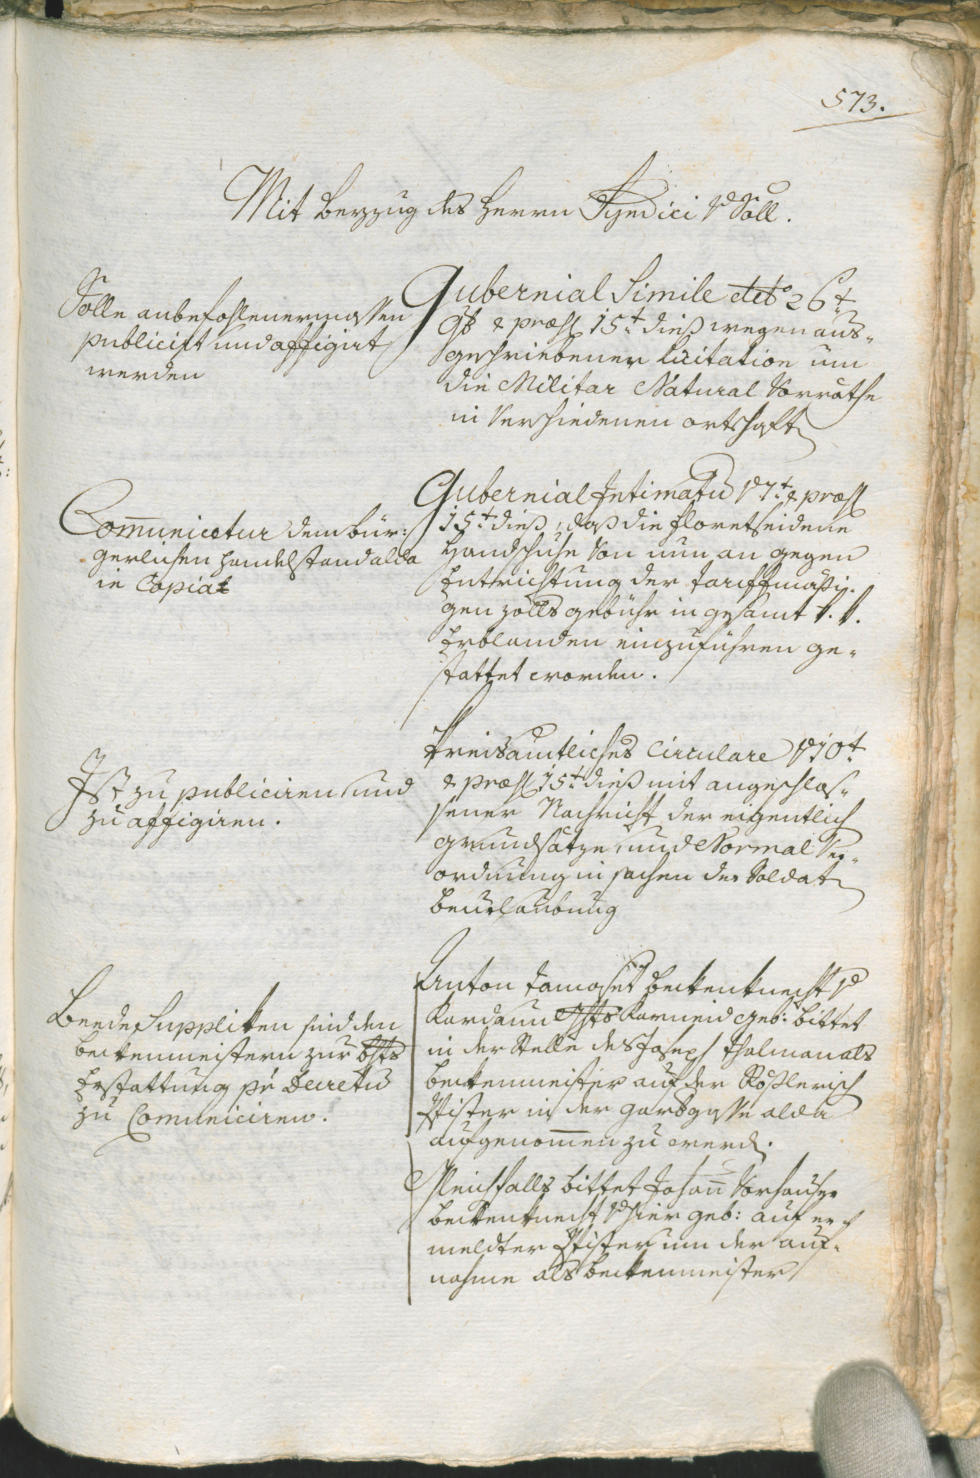 573.
Mit beyzug des Herrn Syndici v Söll.
Solle anbefohlenermassen
publicirt und affigirt
werden
Gubernial Simile dto 26t
& præs 15t dieß wegen aus-
geschriebener licitation um
die Militar Natural Vorräthe
in verschiedenen ortschaft
Com̄unicetur dem bür-
gerlichen handelstand alda
in Copia
Gubernial Intimatu v 7t & præs
15t dieß, daß die floretseidene
Handschuhe von nun an gegen
Entrichtung der tariffmäßi-
gen zolls gebühr in gesamt k. k.
Erblanden einzuführen ge-
stattet worden.
Ist zu publiciren und
zu affigiren.
Kreisamtliches Circulare v 10t
& præs 15t dieß mit angeschlos-
sener Nachricht der eigentlich
grundsätze, und Normal Ver-
ordnung in sachen der Soldat
beurlaubung
Beede Suppliken sind den
beckenmeistern zur
Erstattung pr Decretu
zu Com̄uniciren.
Anton beckenknecht v
Kardaun Karneid geb: bittet
in der Stelle des Joseph Thalman als
beckenmeister auf der Roßlerisch
Pfister in der gassen alda
aufgenom̄en zu werd.
Gleichfalls bittet Johan̄ Vorhauser
beckenknecht v hier geb: auf er-
meldter Pfister um der auf-
nahme als beckenmeister